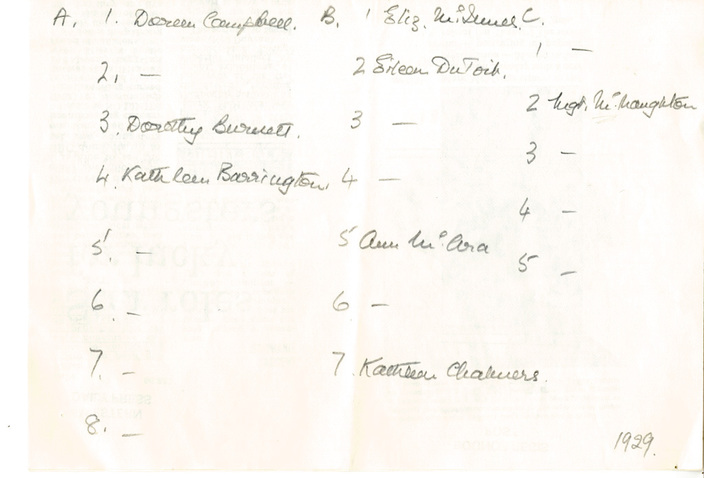 A. 1. Doreen Campbell. B. 1 Eliz. McInnes. C.
1 —
2. — 2 Eileen DuToit.
2 Mgt. McNaughton
3. Dorothy Burnett. 3 —
3 —
4. Kathleen Barrington. 4 —
4 —
5. — 5 Ann McAra
5 —
6. — 6 —
7. — 7. Kathleen Chalmers.
8. —
1929.